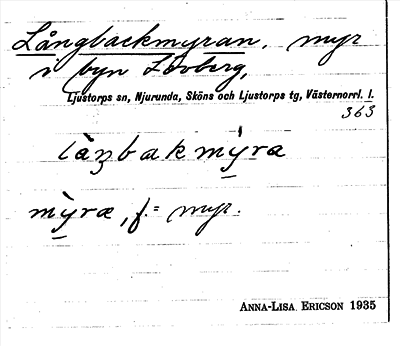 Långbackmyran, myr
i byn Lövberg,
Ljustorps sn, Njurunda, Sköns och Ljustorps tg, Västernorrl. l.
363
làŋbakmy̱ra
mỳ̱ra, f. = myr.
ANNA-LISA ERICSON 1935